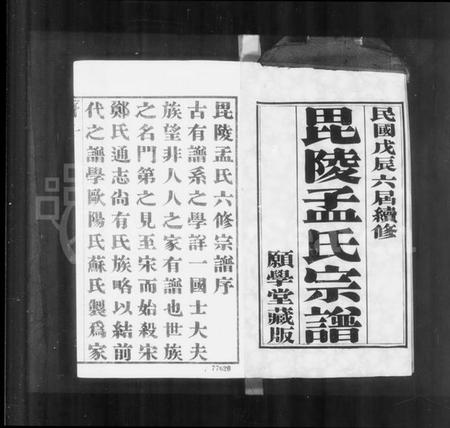 民國戊辰六屆續修
毘陵孟氏宗譜
願學堂藏版
毘陵孟氏六修宗譜序
古有譜系之學詳一國士大夫
族望非人人之家有譜也世族
之名門第之見至宋而始殺宋
鄭氏通志尚有氏族略以結前
代之譜學歐陽氏蘇氏製爲家
序一
77620